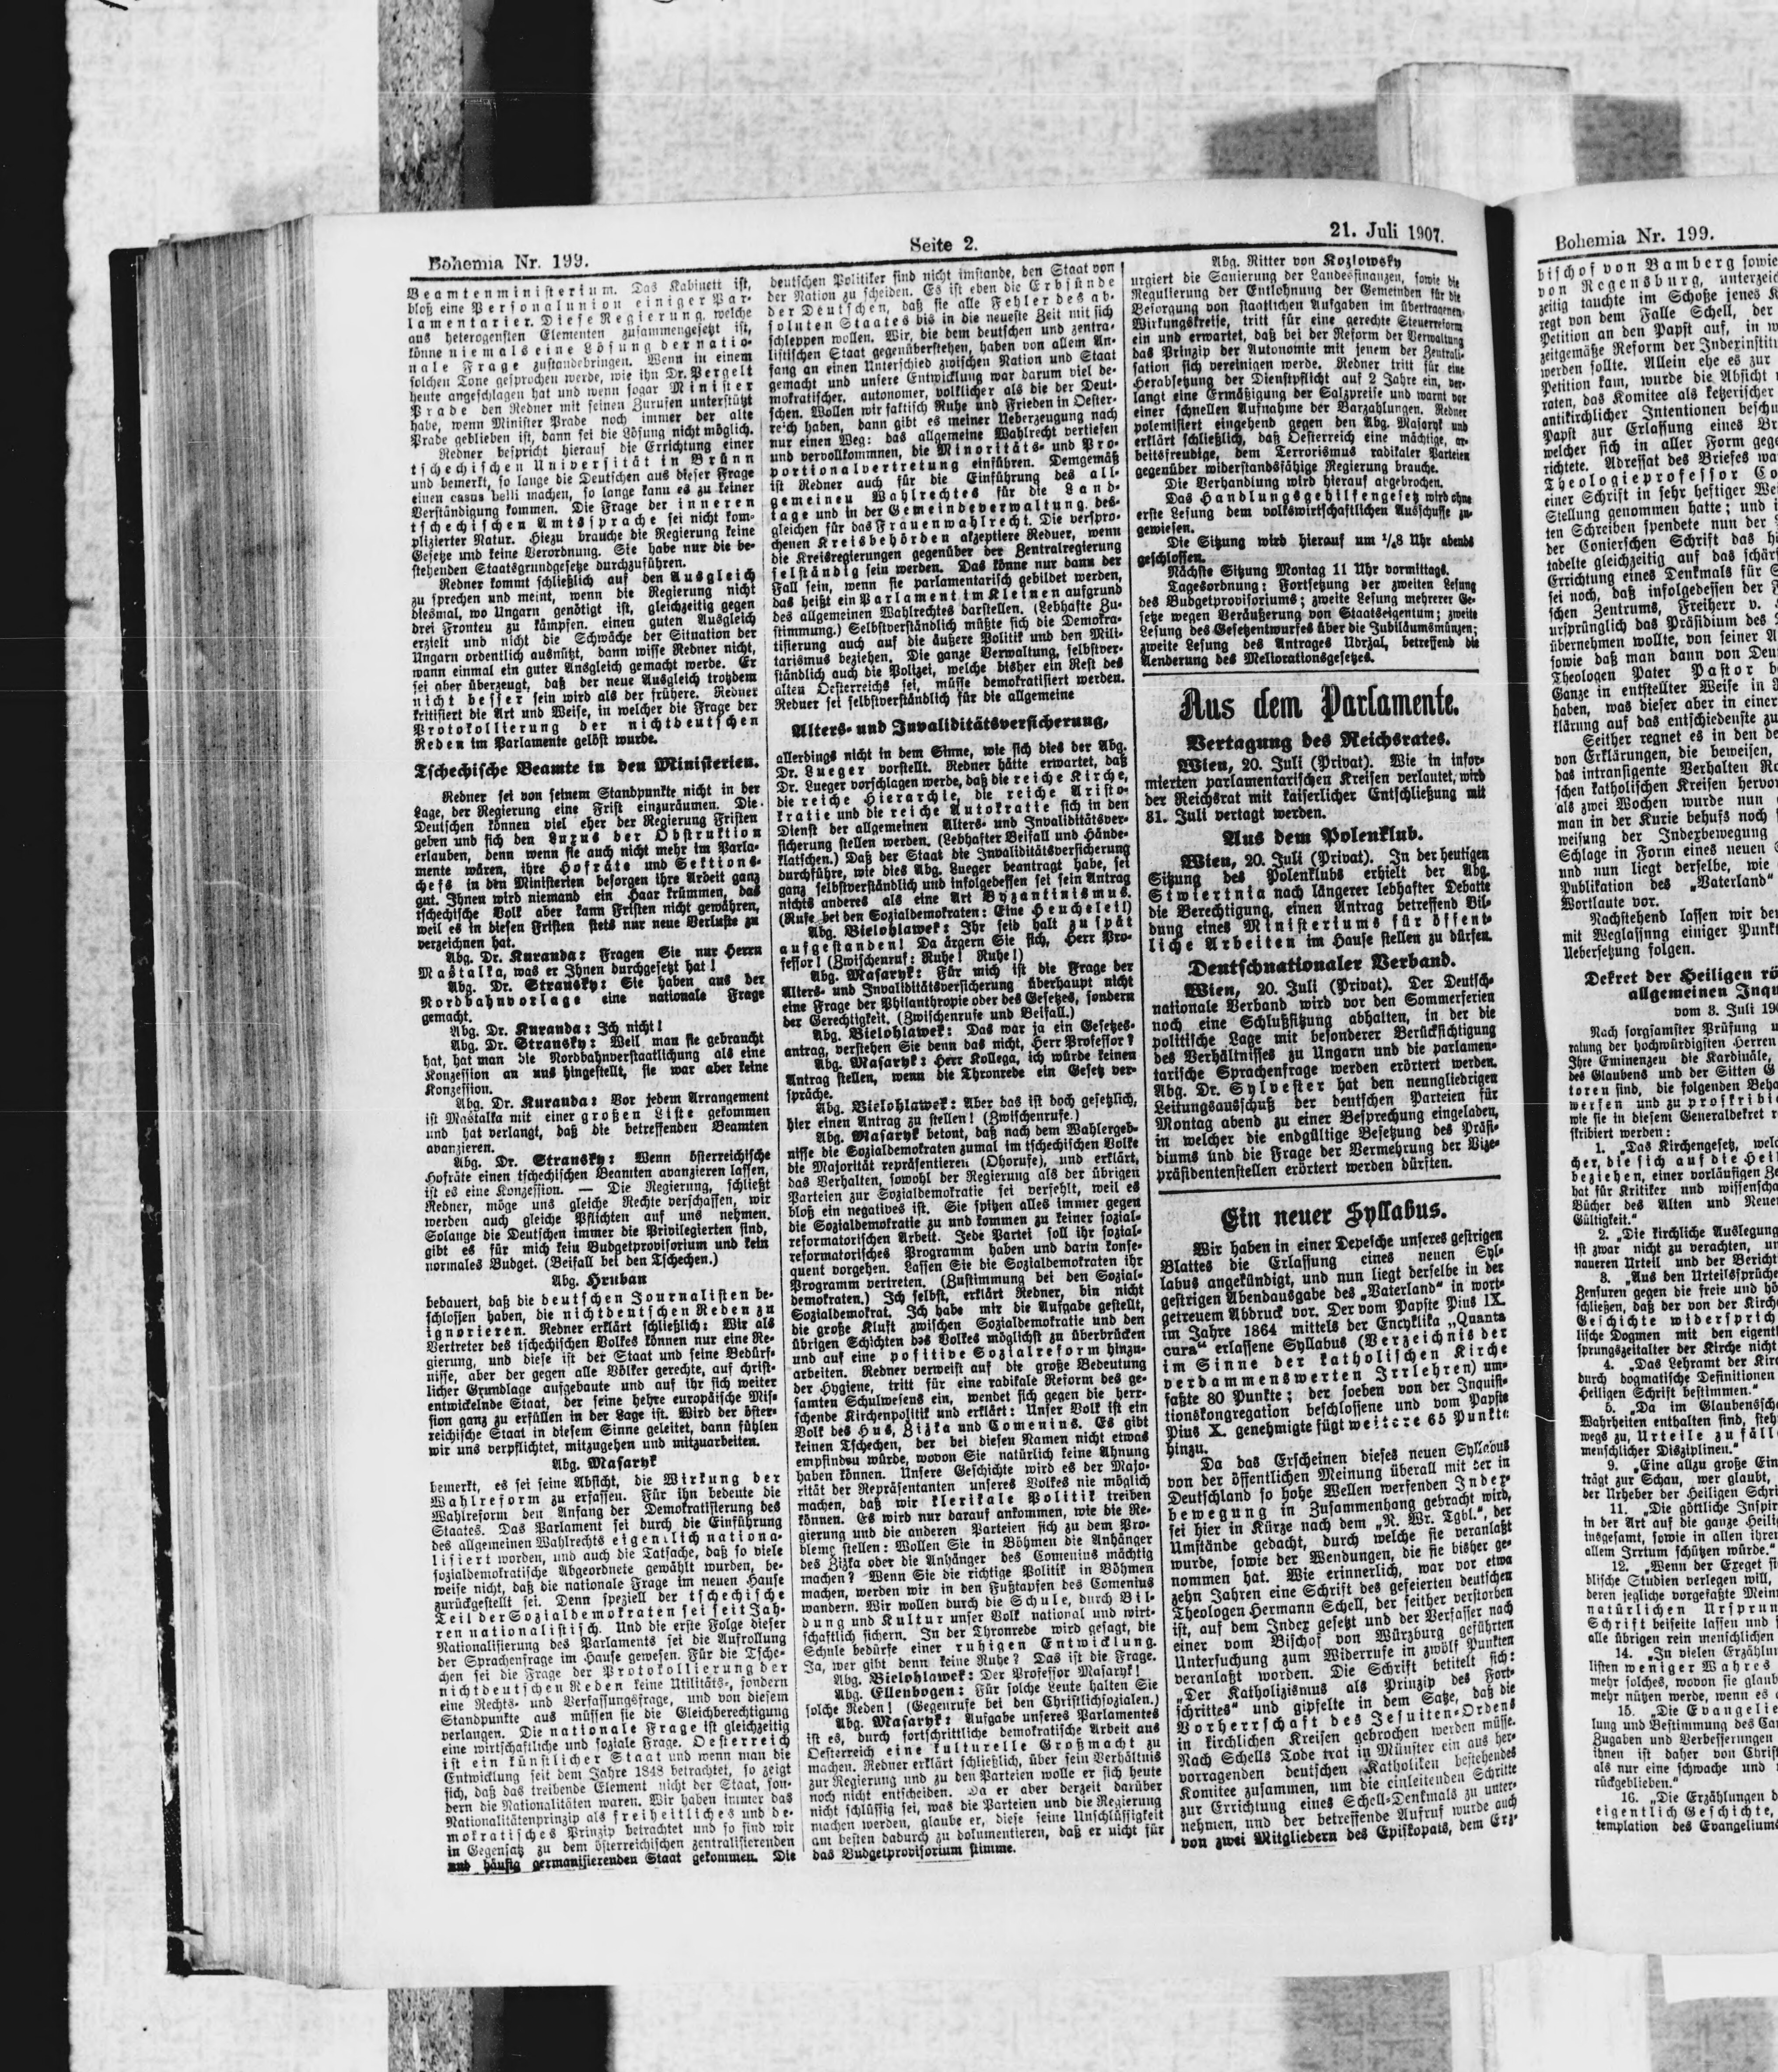 Bohemia Nr. 199.
Seite 2.
21. Juli 1907.
Beamtenministerium. Das Kabinett ist,
bloß eine Personalunion einiger Par-
lamentarier. Diese Regierung, welche
aus heterogensten Elementen zusammengesetzt ist,
könne niemals eine Lösung der natio-
nale Frage zustandebringen. Wenn in einem
solchen Tone gesprochen werde, wie ihn Dr. Pergelt
heute angeschlagen hat und wenn sogar Minister
Prade den Redner mit seinen Zurufen unterstützt
habe, wenn Minister Prade noch immer der alte
Prade geblieben ist, dann sei die Lösung nicht möglich.
Redner bespricht hierauf die Errichtung einer
tschechischen Universität in Brünn
und bemerkt, so lange die Deutschen aus dieser Frage
einen casus belli machen, so lange kann es zu keiner
Verständigung kommen. Die Frage der inneren
tschechischen Amtssprache sei nicht kom-
plizierter Natur. Hiezu brauche die Regierung keine
Gesetze und keine Verordnung. Sie habe nur die be-
stehenden Staatsgrundgesetze durchzuführen.
Redner kommt schließlich auf den Ausgleich
zu sprechen und meint, wenn die Regierung nicht
diesmal, wo Ungarn genötigt ist, gleichzeitig gegen
drei Fronten zu kämpfen, einen guten Ausgleich
erzielt und nicht die Schwäche der Situation der
Ungarn ordentlich ausnützt, dann wisse Redner nicht,
wann einmal ein guter Ausgleich gemacht werde. Er
sei aber überzeugt, daß der neue Ausgleich trotzdem
nicht besser sein wird als der frühere. Redner
kritisiert die Art und Weise, in welcher die Frage der
Protokollierung der nichtdeutschen
Reden im Parlamente gelöst wurde.
Tschechische Beamte in den Ministerien.
Redner sei von seinem Standpunkte nicht in der
Lage, der Regierung eine Frist einzuräumen. Die
Deutschen können viel eher der Regierung Fristen
geben und sich den Luxus der Obstruktion
erlauben, denn wenn sie auch nicht mehr im Parla-
mente wären, ihre Hofräte und Sektions-
chefs in den Ministerien besorgen ihre Arbeit ganz
gut. Ihnen wird niemand ein Haar krümmen, das
tschechische Volk aber kann Fristen nicht gewähren,
weil es in diesen Fristen stets nur neue Verluste zu
verzeichnen hat.
Abg. Dr. Kuranda: Fragen Sie nur Herrn
Mastalka, was er Ihnen durchgesetzt hat!
Abg. Dr. Stransky: Sie haben aus der
Nordbahnvorlage eine nationale Frage
gemacht.
Abg. Dr. Kuranda: Ich nicht!
Abg. Dr. Stransky: Weil man sie gebraucht
hat, hat man die Nordbahnverstaatlichung als eine
Konzession an uns hingestellt, sie war aber keine
Konzession.
Abg. Dr. Kuranda: Vor jedem Arrangement
ist Mastalka mit einer großen Liste gekommen
und hat verlangt, daß die betreffenden Beamten
avanzieren.
Abg. Dr. Stransky: Wenn österreichische
Hofräte einen tschechischen Beamten avanzieren lassen,
ist es eine Konzession. — Die Regierung, schließt
Redner, möge uns gleiche Rechte verschaffen, wir
werden auch gleiche Pflichten auf uns nehmen.
Solange die Deutschen immer die Privilegierten sind,
gibt es für mich kein Budgetprovisorium und kein
normales Budget. (Beifall bei den Tschechen.)
Abg. Hruban
bedauert, daß die deutschen Journalisten be-
schlossen haben, die nichtdeutschen Reden zu
ignorieren. Redner erklärt schließlich: Wir als
Vertreter des tschechischen Volkes können nur eine Re-
gierung, und diese ist der Staat und seine Bedürf-
nisse, aber der gegen alle Völker gerechte, auf christ-
licher Grundlage aufgebaute und auf ihr sich weiter
entwickelnde Staat, der seine hehre europäische Mis-
sion ganz zu erfüllen in der Lage ist. Wird der öster-
reichische Staat in diesem Sinne geleitet, dann fühlen
wir uns verpflichtet, mitzugehen und mitzuarbeiten.
Abg. Masaryk
bemerkt, es sei seine Absicht, die Wirkung der
Wahlreform zu erfassen. Für ihn bedeute die
Wahlreform den Anfang der Demokratisierung des
Staates. Das Parlament sei durch die Einführung
des allgemeinen Wahlrechts eigentlich nationa-
lisiert worden, und auch die Tatsache, daß so viele
sozialdemokratische Abgeordnete gewählt wurden, be-
weise nicht, daß die nationale Frage im neuen Hause
zurückgestellt sei. Denn speziell der tschechische
Teil der Sozialdemokraten sei seit Jah-
ren nationalistisch. Und die erste Folge dieser
Nationalisierung des Parlaments sei die Aufrollung
der Sprachenfrage im Hause gewesen. Für die Tsche-
chen sei die Frage der Protokollierung der
nichtdeutschen Reden keine Utilitäts-, sondern
eine Rechts- und Verfassungsfrage, und von diesem
Standpunkte aus müssen sie die Gleichberechtigung
verlangen. Die nationale Frage ist gleichzeitig
eine wirtschaftliche und soziale Frage. Oesterreich
ist ein künstlicher Staat und wenn man die
Entwicklung seit dem Jahre 1848 betrachtet, so zeigt
sich, daß das treibende Element nicht der Staat, son-
dern die Nationalitäten waren. Wir haben immer das
Nationalitätenprinzip als freiheitliches und de-
mokratisches Prinzip betrachtet und so sind wir
in Gegensatz zu dem österreichischen zentralisierenden
und häufig germanisierenden Staat gekommen. Die
deutschen Politiker sind nicht imstande, den Staat von
der Nation zu scheiden. Es ist eben die Erbsünde
der Deutschen, daß sie alle Fehler des ab-
soluten Staates bis in die neueste Zeit mit sich
schleppen wollen. Wir, die dem deutschen und zentra-
listischen Staat gegenüberstehen, haben von allem An-
fang an einen Unterschied zwischen Nation und Staat
gemacht und unsere Entwicklung war darum viel de-
mokratischer, autonomer, volklicher als die der Deut-
schen. Wollen wir faktisch Ruhe und Frieden in Oester-
reich haben, dann gibt es meiner Ueberzeugung nach
nur einen Weg: das allgemeine Wahlrecht vertiefen
und vervollkommnen, die Minoritäts- und Pro-
portionalvertretung einführen. Demgemäß
ist Redner auch für die Einführung des all-
gemeinen Wahlrechtes für die Land-
tage und in der Gemeindeverwaltung, des-
gleichen für das Frauenwahlrecht. Die verspro-
chenen Kreisbehörden akzeptiere Redner, wenn
die Kreisregierungen gegenüber der Zentralregierung
selständig sein werden. Das könne nur dann der
Fall sein, wenn sie parlamentarisch gebildet werden,
das heißt ein Parlament im Kleinen aufgrund
des allgemeinen Wahlrechtes darstellen. (Lebhafte Zu-
stimmung.) Selbstverständlich müßte sich die Demokra-
tisierung auch auf die äußere Politik und den Mili-
tarismus beziehen. Die ganze Verwaltung, selbstver-
ständlich auch die Polizei, welche bisher ein Rest des
alten Oesterreichs sei, müsse demokratisiert werden.
Redner sei selbstverständlich für die allgemeine
Alters- und Invaliditätsversicherung,
allerdings nicht in dem Sinne, wie sich dies der Abg.
Dr. Lueger vorstellt. Redner hätte erwartet, daß
Dr. Lueger vorschlagen werde, daß die reiche Kirche,
die reiche Hierarchie, die reiche Aristo-
kratie und die reiche Autokratie sich in den
Dienst der allgemeinen Alters- und Invaliditätsver-
sicherung stellen werden. (Lebhafter Beifall und Hände-
klatschen.) Daß der Staat die Invaliditätsversicherung
durchführe, wie dies Abg. Lueger beantragt habe, sei
ganz selbstverständlich und infolgedessen sei sein Antrag
nichts anderes als eine Art Byzantinismus.
(Rufe bei den Sozialdemokraten: Eine Heuchelei!)
Abg. Bielohlawek: Ihr seid halt zu spät
aufgestanden! Da ärgern Sie sich, Herr Pro-
fessor! (Zwischenruf: Ruhe! Ruhe!)
Abg. Masaryk: Für mich ist die Frage der
Alters- und Invaliditätsversicherung überhaupt nicht
eine Frage der Philanthropie oder des Gesetzes, sondern
der Gerechtigkeit. (Zwischenrufe und Beifall.)
Abg. Bielohlawek: Das war ja ein Gesetzes-
antrag, verstehen Sie denn das nicht, Herr Professor?
Abg. Masaryk: Herr Kollega, ich würde keinen
Antrag stellen, wenn die Thronrede ein Gesetz ver-
spräche.
Abg. Bielohlawek: Aber das ist doch gesetzlich,
hier einen Antrag zu stellen! (Zwischenrufe.)
Abg. Masaryk betont, daß nach dem Wahlergeb-
nisse die Sozialdemokraten zumal im tschechischen Volke
die Majorität repräsentieren (Ohorufe), und erklärt,
das Verhalten, sowohl der Regierung als der übrigen
Parteien zur Sozialdemokratie sei verfehlt, weil es
bloß ein negatives ist. Sie spitzen alles immer gegen
die Sozialdemokratie zu und kommen zu keiner sozial-
reformatorischen Arbeit. Jede Partei soll ihr sozial-
reformatorisches Programm haben und darin konse-
quent vorgehen. Lassen Sie die Sozialdemokraten ihr
Programm vertreten. (Zustimmung bei den Sozial-
demokraten.) Ich selbst, erklärt Redner, bin nicht
Sozialdemokrat. Ich habe mir die Aufgabe gestellt,
die große Kluft zwischen Sozialdemokratie und den
übrigen Schichten des Volkes möglichst zu überbrücken
und auf eine positive Sozialreform hinzu-
arbeiten. Redner verweist auf die große Bedeutung
der Hygiene, tritt für eine radikale Reform des ge-
samten Schulwesens ein, wendet sich gegen die herr-
schende Kirchenpolitik und erklärt: Unser Volk ist ein
Volk des Hus, Zizka und Comenius. Es gibt
keinen Tschechen, der bei diesen Namen nicht etwas
empfinden würde, wovon Sie natürlich keine Ahnung
haben können. Unsere Geschichte wird es der Majo-
rität der Repräsentanten unseres Volkes nie möglich
machen, daß wir klerikale Politik treiben
können. Es wird nur darauf ankommen, wie die Re-
gierung und die anderen Parteien sich zu dem Pro-
bleme stellen: Wollen Sie in Böhmen die Anhänger
des Zizka oder die Anhänger des Comenius mächtig
machen? Wenn Sie die richtige Politik in Böhmen
machen, werden wir in den Fußtapfen des Comenius
wandern. Wir wollen durch die Schule, durch Bil-
dung und Kultur unser Volk national und wirt-
schaftlich sichern. In der Thronrede wird gesagt, die
Schule bedürfe einer ruhigen Entwicklung.
Ja, wer gibt denn keine Ruhe? Das ist die Frage.
Abg. Bielohlawek: Der Professor Masaryk!
Abg. Ellenbogen: Für solche Leute halten Sie
solche Reden! (Gegenrufe bei den Christlichsozialen.)
Abg. Masaryk: Aufgabe unseres Parlamentes
ist es, durch fortschrittliche demokratische Arbeit aus
Oesterreich eine kulturelle Großmacht zu
machen. Redner erklärt schließlich, über sein Verhältnis
zur Regierung und zu den Parteien wolle er sich heute
noch nicht entscheiden. Da er aber derzeit darüber
nicht schlüssig sei, was die Parteien und die Regierung
machen werden, glaube er, diese seine Unschlüssigkeit
am besten dadurch zu dokumentieren, daß er nicht für
das Budgetprovisorium stimme.
Abg. Ritter von Kozlowsky
urgiert die Sanierung der Landesfinanzen, sowie die
Regulierung der Entlohnung der Gemeinden für die
Besorgung von staatlichen Aufgaben im übertragenen
Wirkungskreise, tritt für eine gerechte Steuerreform
ein und erwartet, daß bei der Reform der Verwaltung
das Prinzip der Autonomie mit jenem der Zentrali-
sation sich vereinigen werde. Redner tritt für eine
Herabsetzung der Dienstpflicht auf 2 Jahre ein, ver-
langt eine Ermäßigung der Salzpreise und warnt vor
einer schnellen Aufnahme der Barzahlungen. Redner
polemisiert eingehend gegen den Abg. Masaryk und
erklärt schließlich, daß Oesterreich eine mächtige, ar-
beitsfreudige, dem Terrorismus radikaler Parteien
gegenüber widerstandsfähige Regierung brauche.
Die Verhandlung wird hierauf abgebrochen.
Das Handlungsgehilfengesetz wird ohne
erste Lesung dem volkswirtschaftlichen Ausschusse zu-
gewiesen.
Die Sitzung wird hierauf um 1/48 Uhr abends
geschlossen.
Nächste Sitzung Montag 11 Uhr vormittags.
Tagesordnung: Fortsetzung der zweiten Lesung
des Budgetprovisoriums; zweite Lesung mehrerer Ge-
setze wegen Veräußerung von Staatseigentum; zweite
Lesung des Gesetzentwurfes über die Jubiläumsmünzen;
zweite Lesung des Antrages Udrzal, betreffend die
Aenderung des Meliorationsgesetzes.
Aus dem Parlamente.
Vertagung des Reichsrates.
Wien, 20. Juli (Privat). Wie in infor-
mierten parlamentarischen Kreisen verlautet, wird
der Reichsrat mit kaiserlicher Entschließung mit
31. Juli vertagt werden.
Aus dem Polenklub.
Wien, 20. Juli (Privat). In der heutigen
Sitzung des Polenklubs erhielt der Abg.
Stwiertnia nach längerer lebhafter Debatte
die Berechtigung, einen Antrag betreffend Bil-
dung eines Ministeriums für öffent-
liche Arbeiten im Hause stellen zu dürfen.
Deutschnationaler Verband.
Wien, 20. Juli (Privat). Der Deutsch-
nationale Verband wird vor den Sommerferien
noch eine Schlußsitzung abhalten, in der die
politische Lage mit besonderer Berücksichtigung
des Verhältnisses zu Ungarn und die parlamen-
tarische Sprachenfrage werden erörtert werden.
Abg. Dr. Sylvester hat den neungliedrigen
Leitungsausschuß der deutschen Parteien für
Montag abend zu einer Besprechung eingeladen,
in welcher die endgültige Besetzung des Präsi-
diums und die Frage der Vermehrung der Vize-
präsidentenstellen erörtert werden dürften.
Ein neuer Syllabus.
Wir haben in einer Depesche unseres gestrigen
Blattes die Erlassung eines neuen Syl-
labus angekündigt, und nun liegt derselbe in der
gestrigen Abendausgabe des „Vaterland" in wort-
getreuem Abdruck vor. Der vom Papste Pius IX.
im Jahre 1864 mittels der Encyklika „Quanta
cura" erlassene Syllabus (Verzeichnis der
im Sinne der katholischen Kirche
verdammenswerten Irrlehren) um-
faßte 80 Punkte; der soeben von der Inquisi-
tionskongregation beschlossene und vom Papste
Pius X. genehmigte fügt weitere 65 Punkte
hinzu.
Da das Erscheinen dieses neuen Syllabus
von der öffentlichen Meinung überall mit der in
Deutschland so hohe Wellen werfenden Index-
bewegung in Zusammenhang gebracht wird,
sei hier in Kürze nach dem „N. Wr. Tgbl.", der
Umstände gedacht, durch welche sie veranlaßt
wurde, sowie der Wendungen, die sie bisher ge-
nommen hat. Wie erinnerlich, war vor etwa
zehn Jahren eine Schrift des gefeierten deutschen
Theologen Hermann Schell, der seither verstorben
ist, auf dem Index gesetzt und der Verfasser nach
einer vom Bischof von Würzburg geführten
Untersuchung zum Widerrufe in zwölf Punkten
veranlaßt worden. Die Schrift betitelt sich:
„Der Katholizismus als Prinzip des Fort-
schrittes" und gipfelte in dem Satze, daß die
Vorherrschaft des Jesuiten-Ordens
in kirchlichen Kreisen gebrochen werden müsse.
Nach Schells Tode trat in Münster ein aus her-
vorragenden deutschen Katholiken bestehendes
Komitee zusammen, um die einleitenden Schritte
zur Errichtung eines Schell-Denkmals zu unter-
nehmen, und der betreffende Aufruf wurde auch
von zwei Mitgliedern des Episkopats, dem Erz-
Bohemia Nr. 199.
bischof von Bamberg sowie
von Regensburg, unterzeich
zeitig tauchte im Schoße jenes K
regt von dem Falle Schell, der
Petition an den Papst auf, in w
zeitgemäße Reform der Indexinstitu
werden sollte. Allein ehe es zur
Petition kam, wurde die Absicht
raten, das Komitee als ketzerischer
antikirchlicher Intentionen beschu
Papst zur Erlassung eines Br
welcher sich in aller Form gege
richtete. Adressat des Briefes wa
Theologieprofessor Co
einer Schrift in sehr heftiger Wei
Stellung genommen hatte; und i
ten Schreiben spendete nun der
der Conierschen Schrift das h
tadelte gleichzeitig auf das schär
Errichtung eines Denkmals für S
sei noch, daß infolgedessen der F
schen Zentrums, Freiherr v.
ursprünglich das Präsidium des
übernehmen wollte, von seiner A
sowie daß man dann von Deu
Theologen Pater Pastor b
Ganze in entstellter Weise in
haben, was dieser aber in einer
klärung auf das entschiedenste zu
Seither regnet es in den de
von Erklärungen, die beweisen,
das intransigente Verhalten Ro
schen katholischen Kreisen hervor
als zwei Wochen wurde nun
man in der Kurie behufs noch
weisung der Indexbewegung
Schlage in Form eines neuen S
und nun liegt derselbe, wie
Publikation des „Vaterland"
Wortlaute vor.
Nachstehend lassen wir de
mit Weglassung einiger Punkt
Uebersetzung folgen.
Dekret der Heiligen rö
allgemeinen Inqu
vom 3. Juli 190
Nach sorgsamster Prüfung u
ratung der hochwürdigsten Herren
Ihre Eminenzen die Kardinäle,
des Glaubens und der Sitten G
toren sind, die folgenden Beha
werfen und zu proskribie
wie sie in diesem Generaldekret
skribiert werden:
1. „Das Kirchengesetz, welc
cher, die sich auf die Heil
beziehen, einer vorläufigen Ze
hat für Kritiker und wissenscha
Bücher des Alten und Neuen
Gültigkeit."
2. „Die kirchliche Auslegung
ist zwar nicht zu verachten, un
naueren Urteil und der Bericht
3. „Aus den Urteilssprüche
Zensuren gegen die freie und hö
schließen, daß der von der Kirche
Geschichte widersprich
lische Dogmen mit den eigentl
sprungszeitalter der Kirche nicht
4. „Das Lehramt der Kirc
durch dogmatische Definitionen
Heiligen Schrift bestimmen."
5. „Da im Glaubenssch
Wahrheiten enthalten sind, steh
wegs zu, Urteile zu fäll
menschlicher Disziplinen."
9. „Eine allzu große Ein
trägt zur Schau, wer glaubt,
der Urheber der Heiligen Schri
11. „Die göttliche Inspir
in der Art auf die ganze Heili
insgesamt, sowie in allen ihren
allem Irrtum schützen würde."
12. „Wenn der Exeget si
blische Studien verlegen will,
deren jegliche vorgefaßte Mein
natürlichen Ursprun
Schrift beiseite lassen und
alle übrigen rein menschlichen
14. „In vielen Erzählun
listen weniger Wahres
mehr solches, wovon sie glaub
mehr nützen werde, wenn es
15. „Die Evangelie
lung und Bestimmung des Can
Zugaben und Verbesserungen
ihnen ist daher von Christ
als nur eine schwache und
rückgeblieben."
16. „Die Erzählungen d
eigentlich Geschichte,
templation des Evangeliums